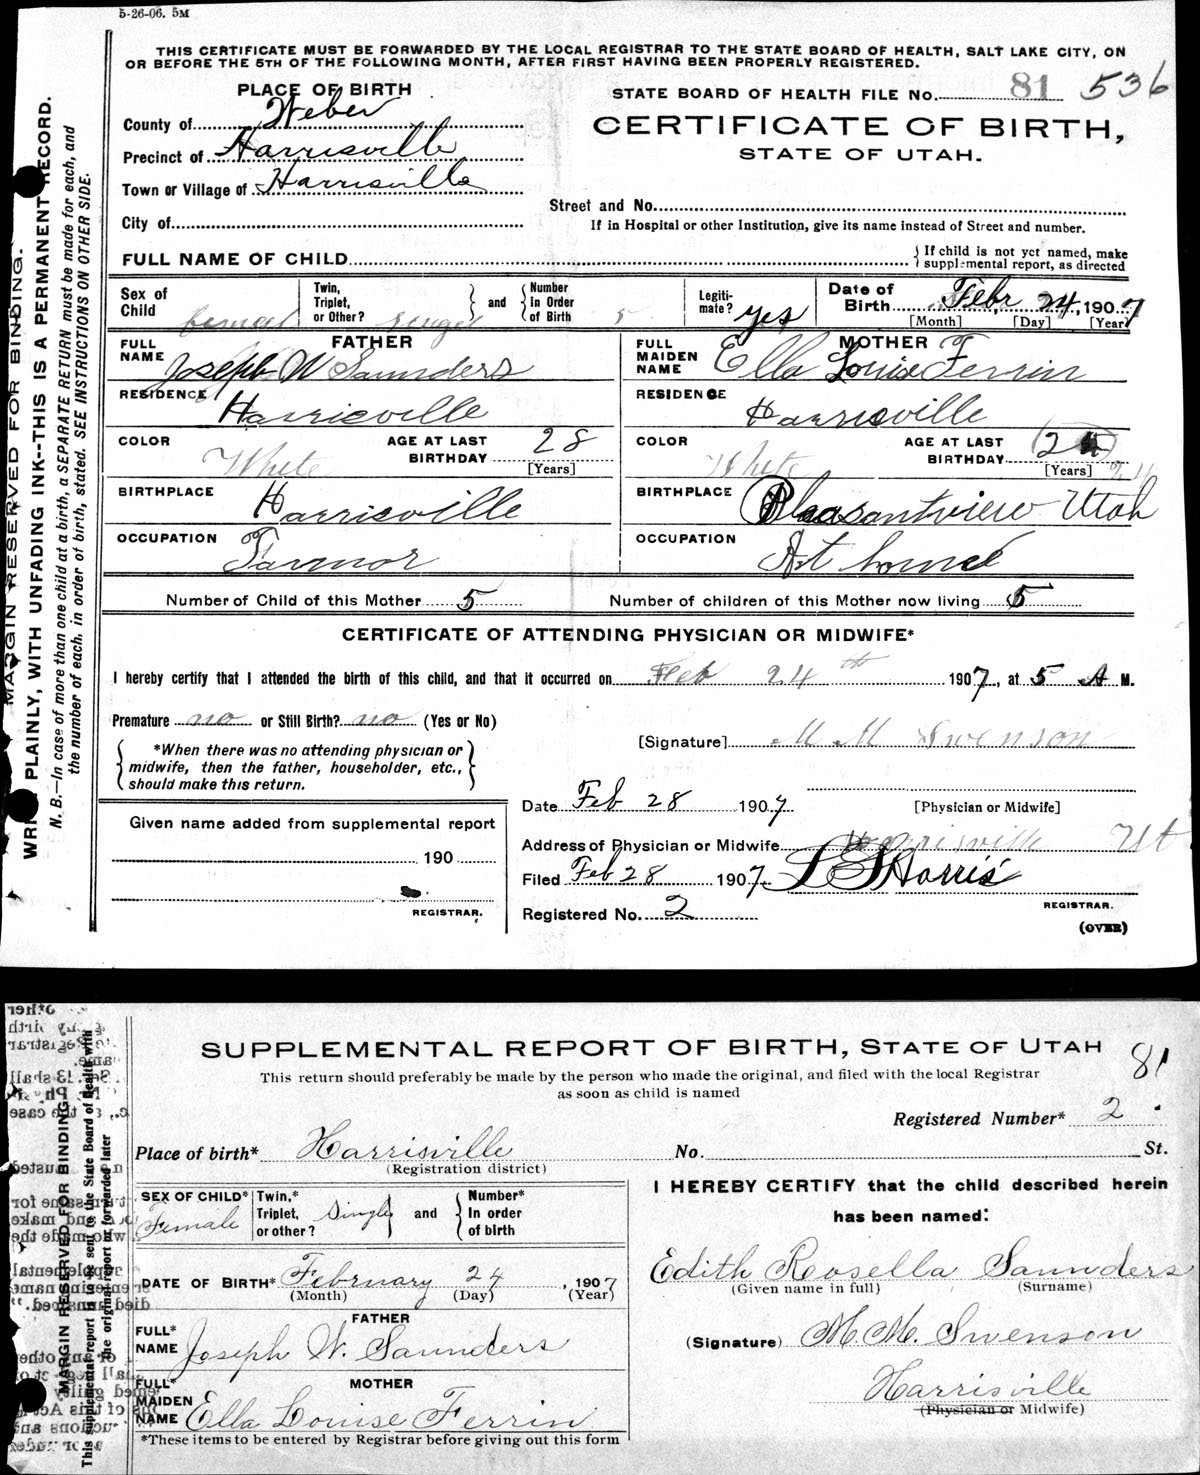 5-26-06. 5M
THIS CERTIFICATE MUST BE FORWARDED BY THE LOCAL REGISTRAR TO THE STATE BOARD OF HEALTH, SALT LAKE CITY, ON
OR BEFORE THE 5TH OF THE FOLLOWING MONTH, AFTER FIRST HAVING BEEN PROPERLY REGISTERED.
PLACE OF BIRTH
STATE BOARD OF HEALTH FILE No. 81 536
County of Weber
CERTIFICATE OF BIRTH,
STATE OF UTAH.
Precinct of Harrisville
Town or Village of Harrisville
Street and No.
City of
If in Hospital or other Institution, give its name instead of Street and number.
FULL NAME OF CHILD
{ If child is not yet named, make
supplemental report, as directed
Sex of Child female
Twin, Triplet, or Other? singel } and { Number In Order of Birth 5
Legitimate? yes
Date of Birth Febr 24, 1907
[Month] [Day] [Year]
FATHER
FULL NAME Joseph W Saunders
MOTHER
FULL MAIDEN NAME Ella Louise Ferrin
RESIDENCE Harrisville
RESIDENCE Harrisville
COLOR White AGE AT LAST BIRTHDAY 28 [Years]
COLOR White AGE AT LAST BIRTHDAY (24) 24 [Years]
BIRTHPLACE Harrisville
BIRTHPLACE Pleasantview Utah
OCCUPATION Farmor
OCCUPATION At home
Number of Child of this Mother 5 Number of children of this Mother now living 5
CERTIFICATE OF ATTENDING PHYSICIAN OR MIDWIFE*
I hereby certify that I attended the birth of this child, and that it occurred on Feb 24th 1907, at 5 A M.
Premature no or Still Birth? no (Yes or No)
{ *When there was no attending physician or
midwife, then the father, householder, etc.,
should make this return. }
[Signature] M M Swenson
[Physician or Midwife]
Date Feb 28 1907
Address of Physician or Midwife Harrisville Ut
Filed Feb 28 1907 L S Harris
REGISTRAR.
Registered No. 2
(OVER)
Given name added from supplemental report
190
REGISTRAR.
MARGIN RESERVED FOR BINDING.
WRITE PLAINLY, WITH UNFADING INK--THIS IS A PERMANENT RECORD.
N. B.—In case of more than one child at a birth, a SEPARATE RETURN must be made for each, and
the number of each, in order of birth, stated. SEE INSTRUCTIONS ON OTHER SIDE.
SUPPLEMENTAL REPORT OF BIRTH, STATE OF UTAH 81
This return should preferably be made by the person who made the original, and filed with the local Registrar
as soon as child is named
Registered Number* 2
Place of birth* Harrisville No. St.
(Registration district)
SEX OF CHILD* Female
Twin,* Triplet, or other? Single } and { Number* In order of birth
DATE OF BIRTH* February 24, 1907
(Month) (Day) (Year)
FATHER
FULL* NAME Joseph W. Saunders
MOTHER
FULL* MAIDEN NAME Ella Louise Ferrin
*These items to be entered by Registrar before giving out this form
I HEREBY CERTIFY that the child described herein
has been named:
Edith Rosella Saunders
(Given name in full) (Surname)
(Signature) M. M. Swenson
Harrisville
(Physician or Midwife)
MARGIN RESERVED FOR BINDING
This supplemental report is to be sent to the State Board of Health with
the original report or forwarded later